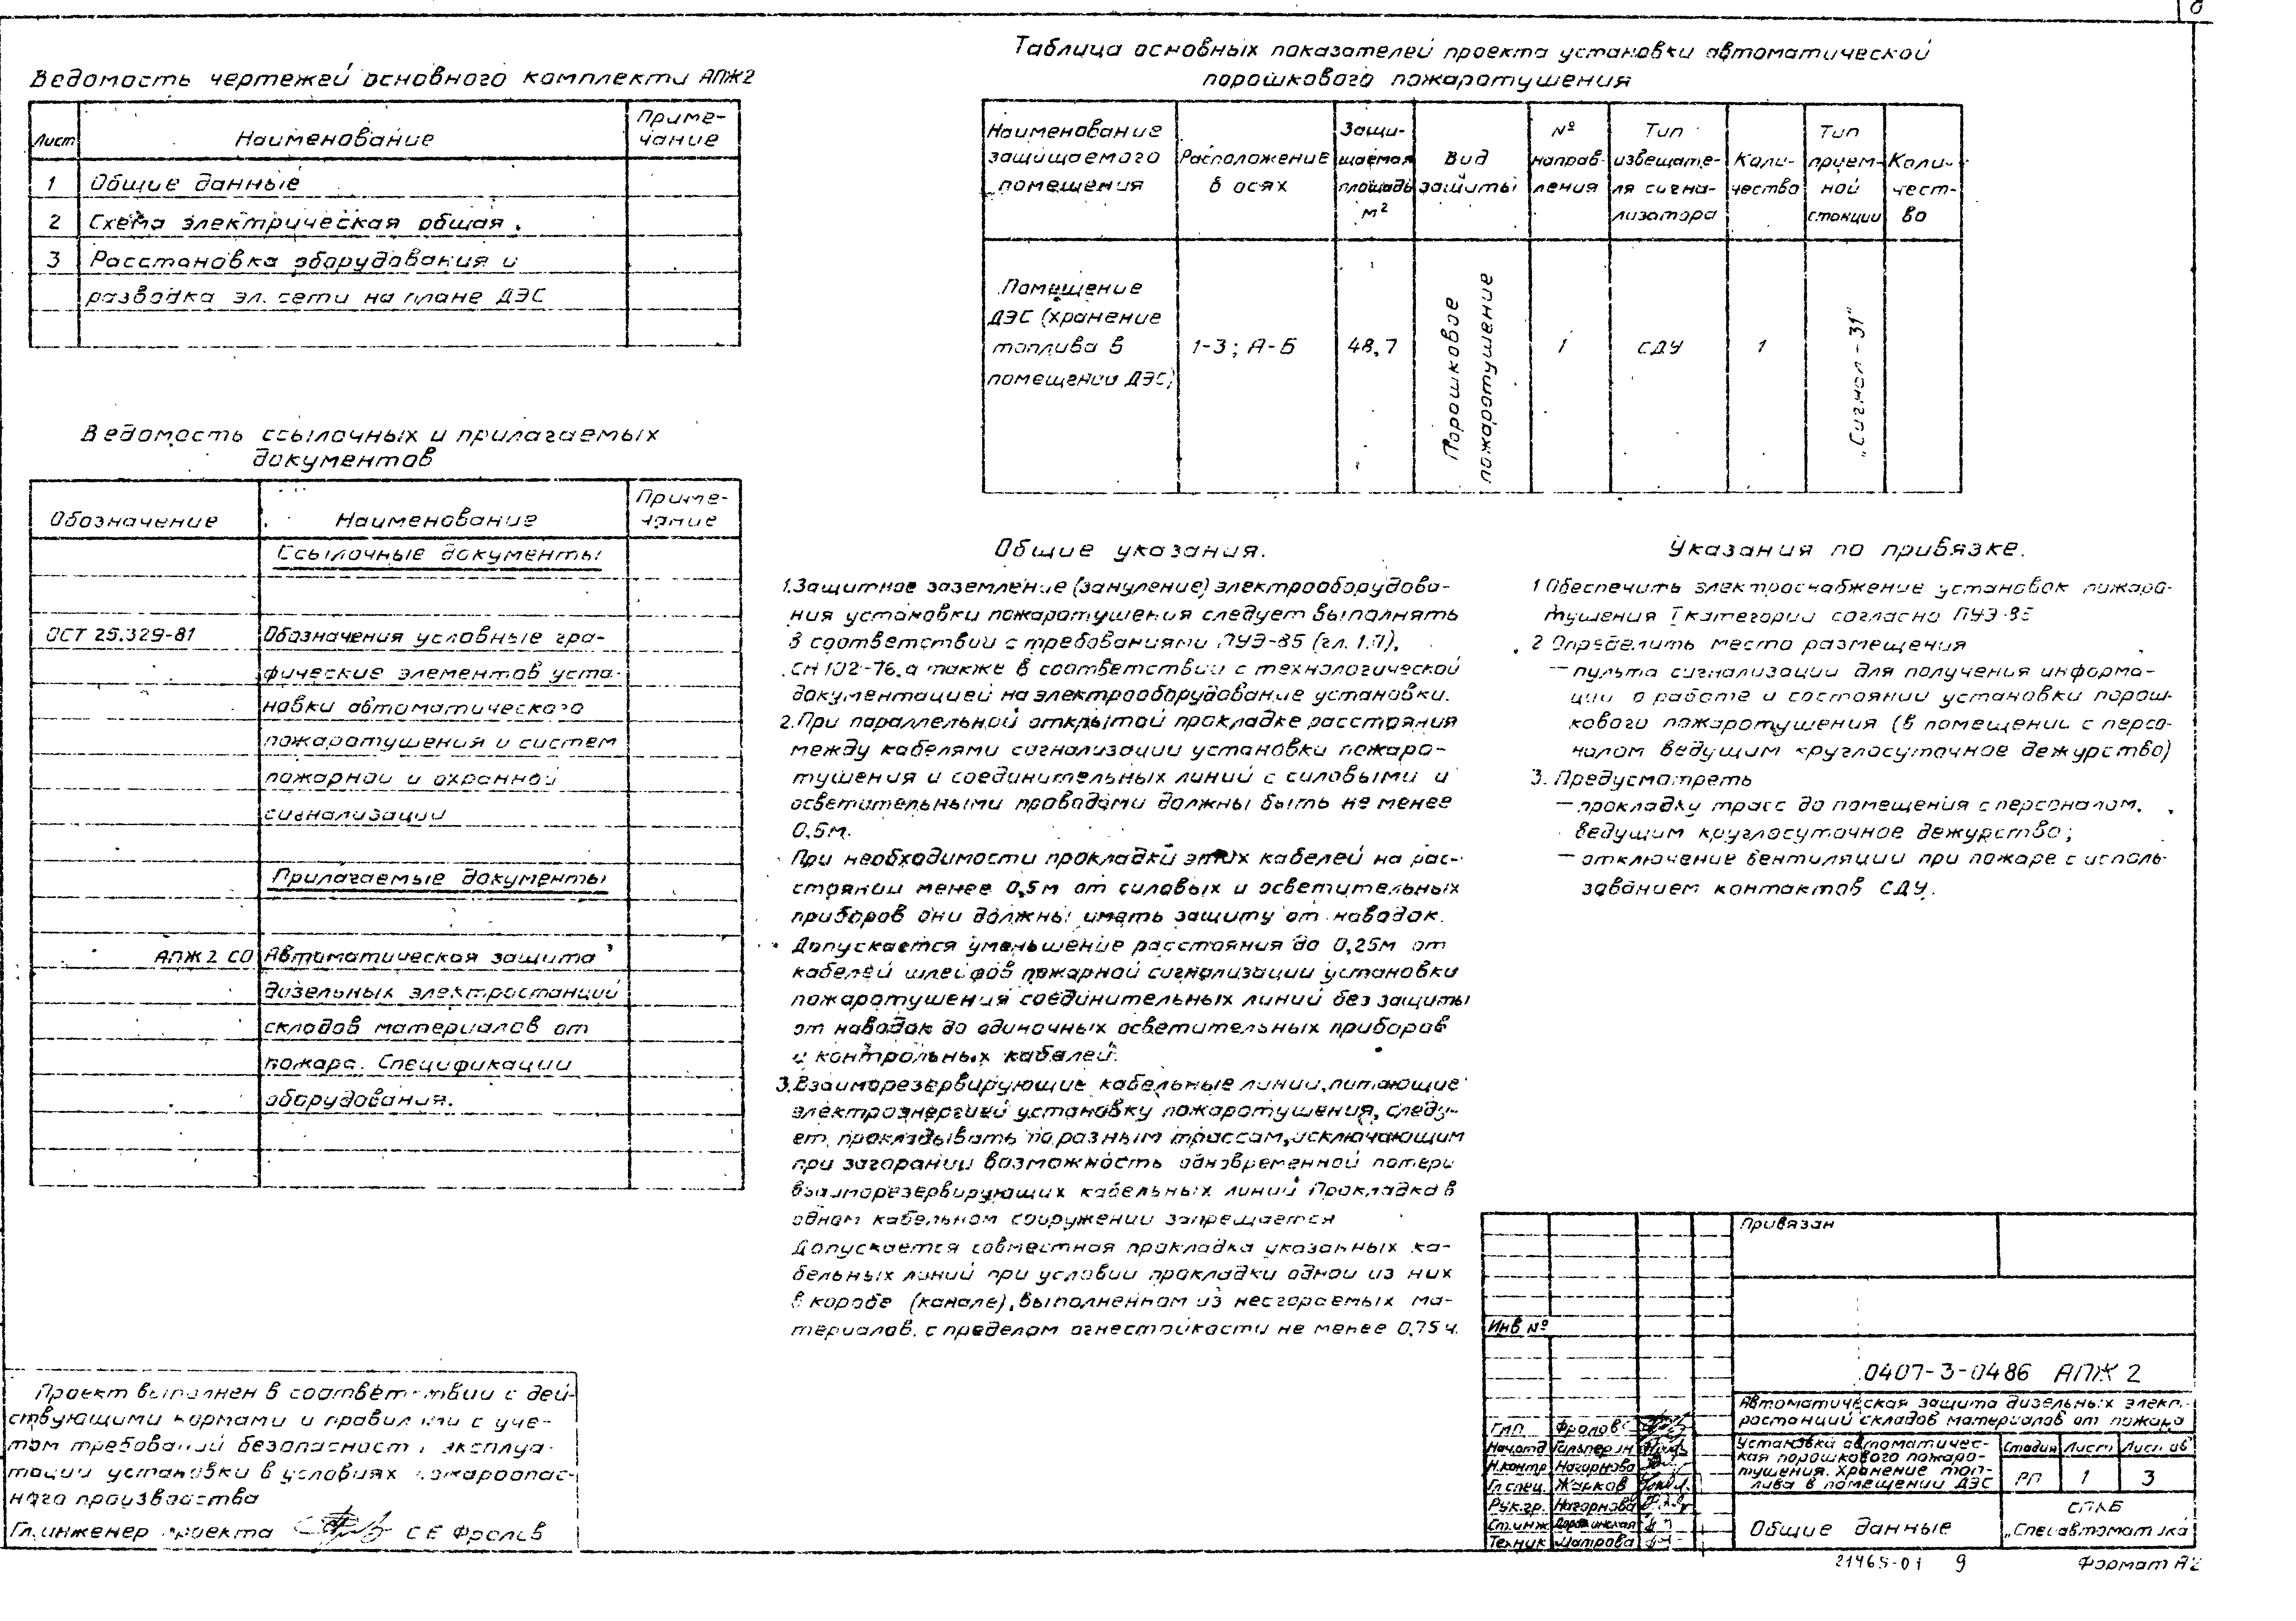 Ведомость чертежей основного комплекта АПЖ2
Лист
Наименование
Приме-
чание
1 Общие данные
2 Схема электрическая общая.
3 Расстановка оборудования и
разводка эл. сети на плане ДЭС
Ведомость ссылочных и прилагаемых
документов
Обозначение
Наименование
Приме-
чание
Ссылочные документы
ОСТ 25.329-81 Обозначения условные гра-
фические элементов уста-
новки автоматического
пожаротушения и систем
пожарной и охранной
сигнализации
Прилагаемые документы
АПЖ2 СО Автоматическая защита
дизельных электростанций
складов материалов от
пожара. Спецификации
оборудования.
Проект выполнен в соответствии с дей-
ствующими нормами и правилами с уче-
том требований безопасности эксплуа-
тации установки в условиях пожароопас-
ного производства
Гл. инженер проекта С Е Фролов
Таблица основных показателей проекта установки автоматической
порошкового пожаротушения
Наименование
защищаемого
помещения
Расположение
в осях
Защи-
щаемая
площадь
м²
Вид
защиты
№
направ-
ления
Тип
извещате-
ля сигна-
лизатора
Коли-
чество
Тип
прием-
ной
станции
Коли-
чест-
во
Помещение
ДЭС (хранение
топлива в
помещении ДЭС)
1-3; А-Б
48,7
Порошковое
пожаротушение
1
СДУ
1
„Сигнал-31"
Общие указания.
1. Защитное заземление (зануление) электрооборудова-
ния установки пожаротушения следует выполнять
в соответствии с требованиями ПУЭ-85 (гл. 1.7),
СН 102-76, а также в соответствии с технологической
документацией на электрооборудование установки.
2. При параллельной открытой прокладке расстояния
между кабелями сигнализации установки пожаро-
тушения и соединительных линий с силовыми и
осветительными проводами должны быть не менее
0,5м.
При необходимости прокладки этих кабелей на рас-
стоянии менее 0,5м от силовых и осветительных
приборов они должны иметь защиту от наводок.
Допускается уменьшение расстояния до 0,25м от
кабелей шлейфов пожарной сигнализации установки
пожаротушения соединительных линий без защиты
от наводок до одиночных осветительных приборов
и контрольных кабелей.
3. Взаиморезервирующие кабельные линии, питающие
электроэнергией установку пожаротушения, следу-
ет прокладывать по разным трассам, исключающим
при загорании возможность одновременной потери
взаиморезервирующих кабельных линий Прокладка в
одном кабельном сооружении запрещается
Допускается совместная прокладка указанных ка-
бельных линий при условии прокладки одной из них
в коробе (канале), выполненном из несгораемых ма-
териалов, с пределом огнестойкости не менее 0,75 ч.
Указания по привязке.
1 Обеспечить электроснабжение установок пожаро-
тушения I категории согласно ПУЭ-85
2 Определить место размещения
— пульта сигнализации для получения информа-
ции о работе и состоянии установки порош-
кового пожаротушения (в помещении с персо-
налом ведущим круглосуточное дежурство)
3. Предусмотреть
— прокладку трасс до помещения с персоналом,
ведущим круглосуточное дежурство;
— отключение вентиляции при пожаре с исполь-
зованием контактов СДУ.
Привязан
Инв №
0407-3-0486 АПЖ 2
Автоматическая защита дизельных элект-
ростанций складов материалов от пожара
ГИП Фролов
Нач.отд Гильперин
Н.контр Нагорнова
Гл.спец. Жарков
Рук.гр. Нагорнова
Ст.инж
Техник Шатрова
Установка автоматичес-
кая порошкового пожаро-
тушения. Хранение топ-
лива в помещении ДЭС
Стадия Лист Листов
РП 1 3
Общие данные
СПКБ
„Спецавтоматика
21465-01 9 Формат А2